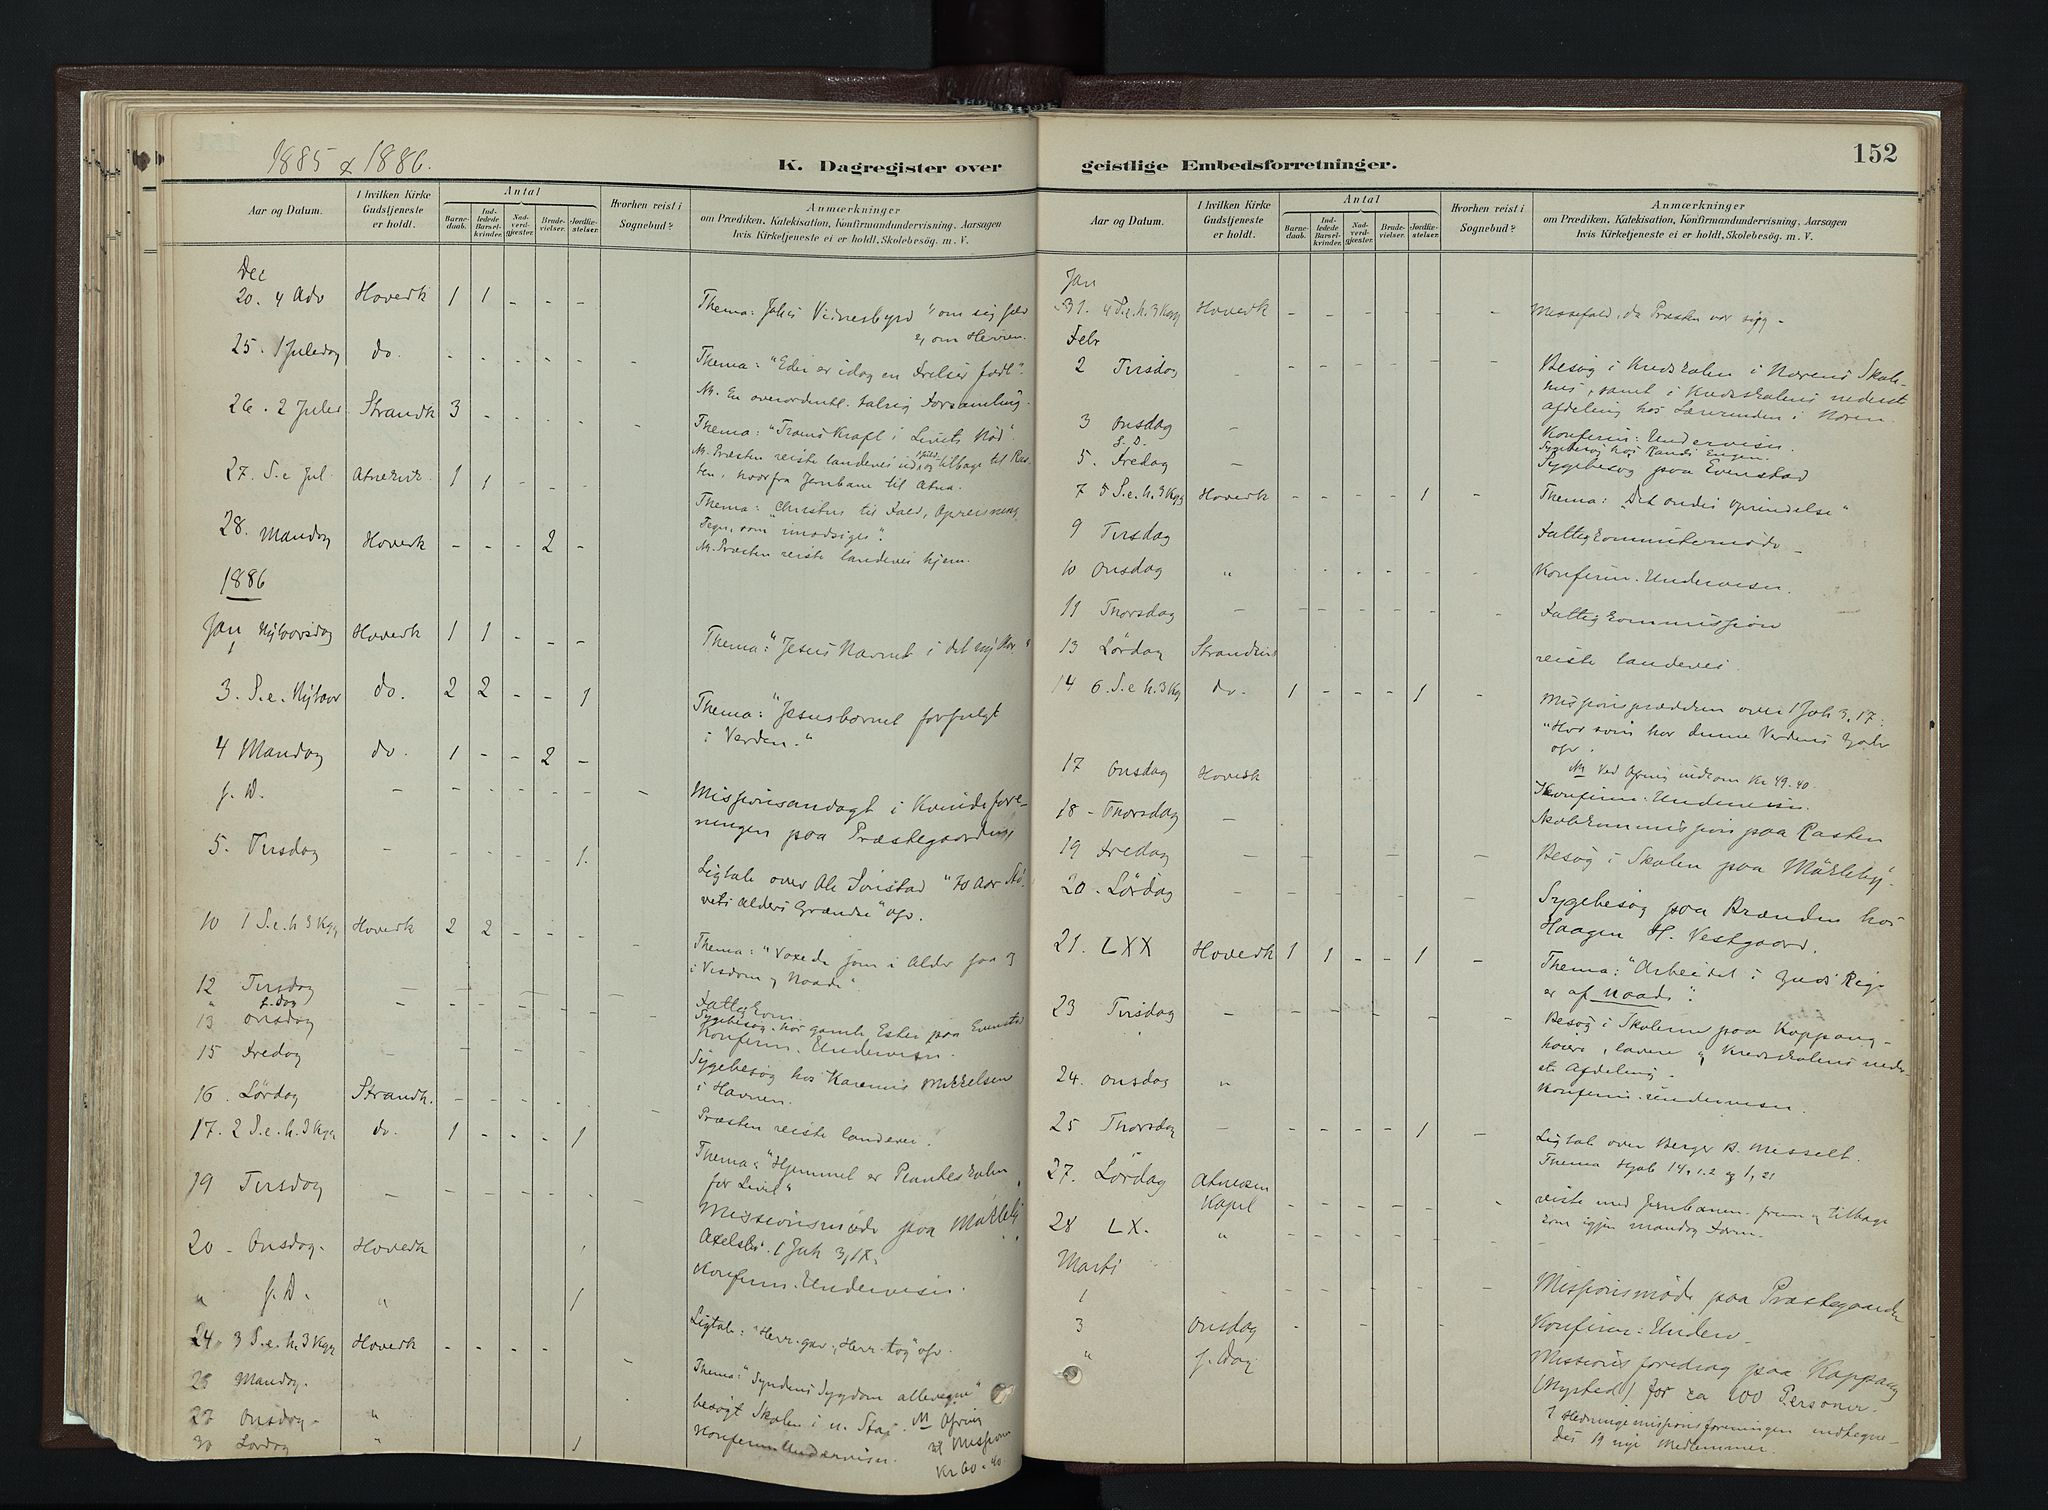 1885 & 1886.
K. Dagregister over
Aar og Datum.
I hvilken Kirke Gudstjeneste er holdt.
Antal
Barnedaab.
Indledede Barselkvinder.
Nadverdgjester.
Brudevielser.
Jordfæstelser.
Hvorhen reist i Sognebud?
Anmærkninger
om Prædiken, Katekisation, Konfirmandundervisning, Aarsagen
hvis Kirketjeneste ei er holdt, Skolebesög. m. V.
Dec
20. 4 Adv Hovedk 1 1 - - -
Thema: Joh's Vidnesbyrd om sig selv
og om Herren.
25. 1 Juledag do. - - - - - -
Thema: "Eder er idag en Frelser født".
26. 2 Juled. Strandk 3 - - - - -
Thema: "Troens Kraft i Livets Nød".
27. S. e Jul. Atnekirk. 1 1 - - -
Thema: Christus til Fald, Opreisning,
Tegn, som "imodsiges".
28. Mandag Hovedk - - - 2 -
NB. Præsten reiste landevei hjem.
1886
Jan Nytaarsdag Hovedk 1 1 - - -
1
Thema: "Jesus Navnet i det ny Aar"
3. S. e. Nytaar do. 2 2 - - 1
Thema: "Jesusbarnet forfulgt
i Verden."
4 Mandag do. 1 - - 2 -
s. D. - - - - - - -
Missionsandagt i Kvindefore-
ningen paa Præstegaarden
5. Tirsdag - - - - - 1.
Ligtale over Ole "70 Aar Stø-
vets Alders Grændse" osv.
10 1 S. e. h 3 Kgr Hovedk 2 2 - - - -
Thema: "Voxede som i Alder saa og
i Visdom og Naade".
12 Tirsdag
" s. dag
Fattigkom.
Sygebesøg hos gamle Ester paa Evenstad
13 Onsdag
Konfirm. Undervisn.
15 Fredag
Sygebesøg hos Karenus Mikkelsen
i Havnen.
16 Lørdag Strandk.
Præsten reiste landevei.
17. 2 S. e. h. 3 Kgr do. 1 - - - 1
Thema: "Hjemmet er Planteskolen
for Livet"
19 Tirsdag
Missionsmøde paa
1 Joh 3, 17.
20 - Onsdag. Hovedk
Konfirm. Undervisn.
" s. D. " 1
Ligtale: "Herr. gav, Herr. tog" osv.
24. 3 S. e. h. 3 Kgr Hovedk - - - - -
Thema: "Syndens Sygdom allevegne"
25 Mandag.
besøgt Skolen i
NB Ofring
til Mission
Kr 60.40.
Onsdag. "
Konfirm Undervisn.
30 Lørdag " 1
geistlige Embedsforretninger.
152
Aar og Datum.
I hvilken Kirke Gudstjeneste er holdt.
Antal
Barnedaab.
Indledede Barselkvinder.
Nadverdgjester.
Brudevielser.
Jordfæstelser.
Hvorhen reist i Sognebud?
Anmærkninger
om Prædiken, Katekisation, Konfirmandundervisning, Aarsagen
hvis Kirketjeneste ei er holdt, Skolebesög. m. V.
Jan
31. 4 S. e. h. 3 Kgr Hovedk - - - - - -
Messefald, da Præsten var syg -
Febr
2 Tirsdag
Besøg i Kredsskolen i Skole-
hus, samt i Kredsskolens nederste
Afdeling hos Lærerinden i
3 Onsdag
Konfirm: Undervisn.
s. D.
Sygebesøg hos Randi Engen.
5. Fredag
Sygebesøg paa Evenstad
7 5 S. e. h. 3 Kgr Hovedk - - - - 1 -
Thema: "Det ondes Oprindelse"
9 Tirsdag
Fattigkommitemøde -
10 Onsdag "
Konfirm. Undervisn.
11 Thorsdag
Fattigkommission
13 Lørdag
reiste landevei.
14 6. S. e h. 3 Kgr do. 1 - - - 1 -
Missionsprædiken over 1 Joh 3, 17:
"Hvo som har denne Verdens Gods
osv.
NB Ved Ofring indkom Kr 49.40.
17 Onsdag Hovedk
Konfirm: Undervisn.
18 - Thorsdag
Skolekommission paa Rasten
19 Fredag
Besøg i Skolen paa
20. Lørdag
Sygebesøg paa Brænden hos
Haagen H. Vestgaard.
21. LXX Hovedk 1 1 - - 1 -
Thema: "Arbeidet i Guds Rige
er af Naade".
23 Tirsdag
Besøg i Skolerne paa Koppang -
høiere, lavere og Kredsskolens neder-
ste Afdeling.
24. Onsdag "
Konfirm. undervisn.
25 Thorsdag - 1 -
Ligtale over Berger B. Misselt.
Thema Hjob 14, 1.2 og 1, 21
27. Lørdag Atneosen
Kapel
reiste med Jernbanen frem og tilbage
kom igjen Mandag Form.
28 LX. "
Marts
1
Missionsmøde paa Præstegaarden
3 Onsdag
Konfirm: Underv -
" s. Dag
Missionsforedrag paa Koppang
(Nysted) for ca 100 Personer.
I Hedningemissionsforeningen indtegne-
des 19 nye Medlemmer.